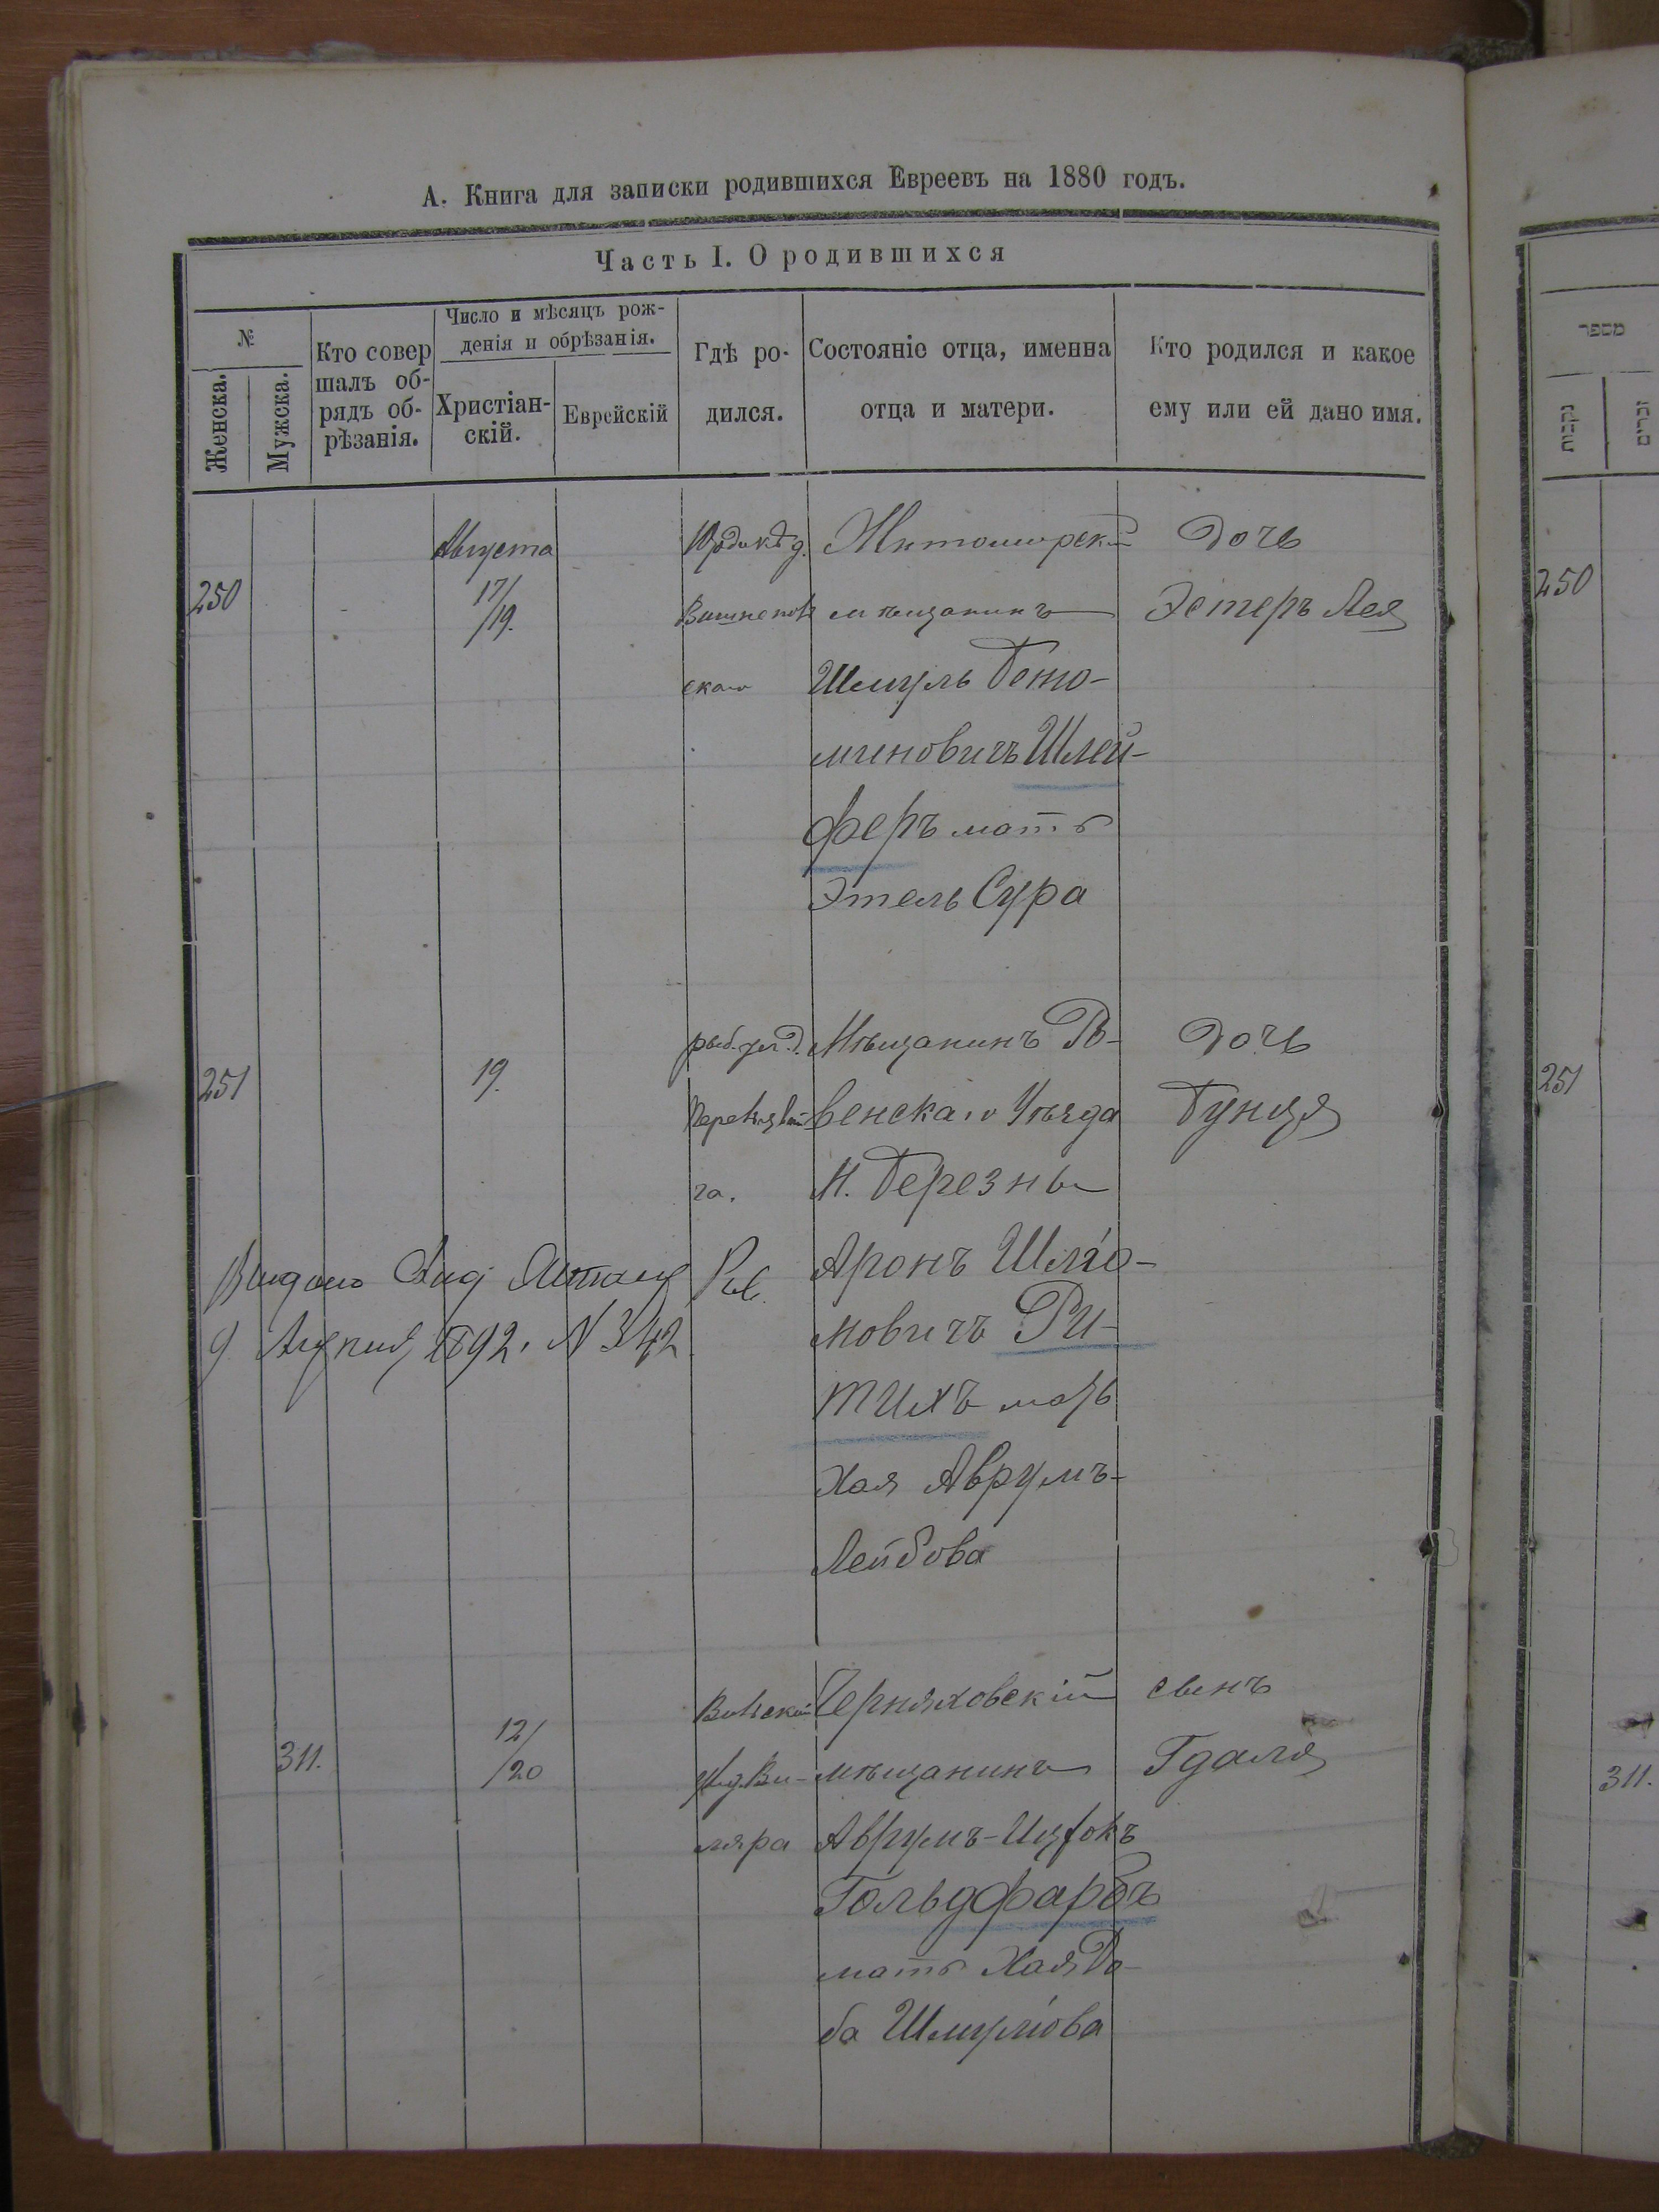 А. Книга для записки родившихся Евреевъ на 1880 годъ.
Часть I. О родившихся
№
Женска.
Мужска.
Кто совер
шалъ об-
рядъ об-
рѣзанія.
Число и мѣсяцъ рож-
денія и обрѣзанія.
Христіан-
скій.
Еврейскій
Гдѣ ро-
дился.
Состояніе отца, именна
отца и матери.
Кто родился и какое
ему или ей дано имя.
250
Августа
17/
/19.
скаго
Житомирскій
мѣщанинъ
Шмуль Беню-
миновичъ Шлей-
феръ мать
Этель Сура
Дочь
Эстеръ Лея
251
19.
га.
Мѣщанинъ Ро-
венскаго Уѣзда
М. Березны
Аронъ Шлiо-
мовичъ Ри-
тихъ мать
Хая Аврумъ-
Лейбова
Дочь
Бунця
Выдано
9 1892. N 342
311.
12/
/20
Вильский
ляра
Черняховскій
мѣщанинъ
Аврумъ-Ицхокъ
Гольдфарбъ
мать Хая До-
ба Шмулiова
сынъ
Гдаля
מספר
נקבות
זכרים
250
251
311.